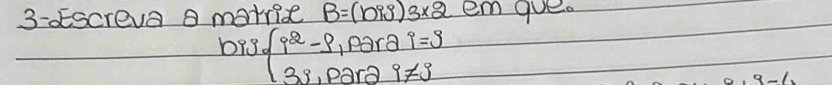 3-Escreva a matriz B=(bij)3x2 em que.
bij { i²-i, para i=j
3j, para i≠j